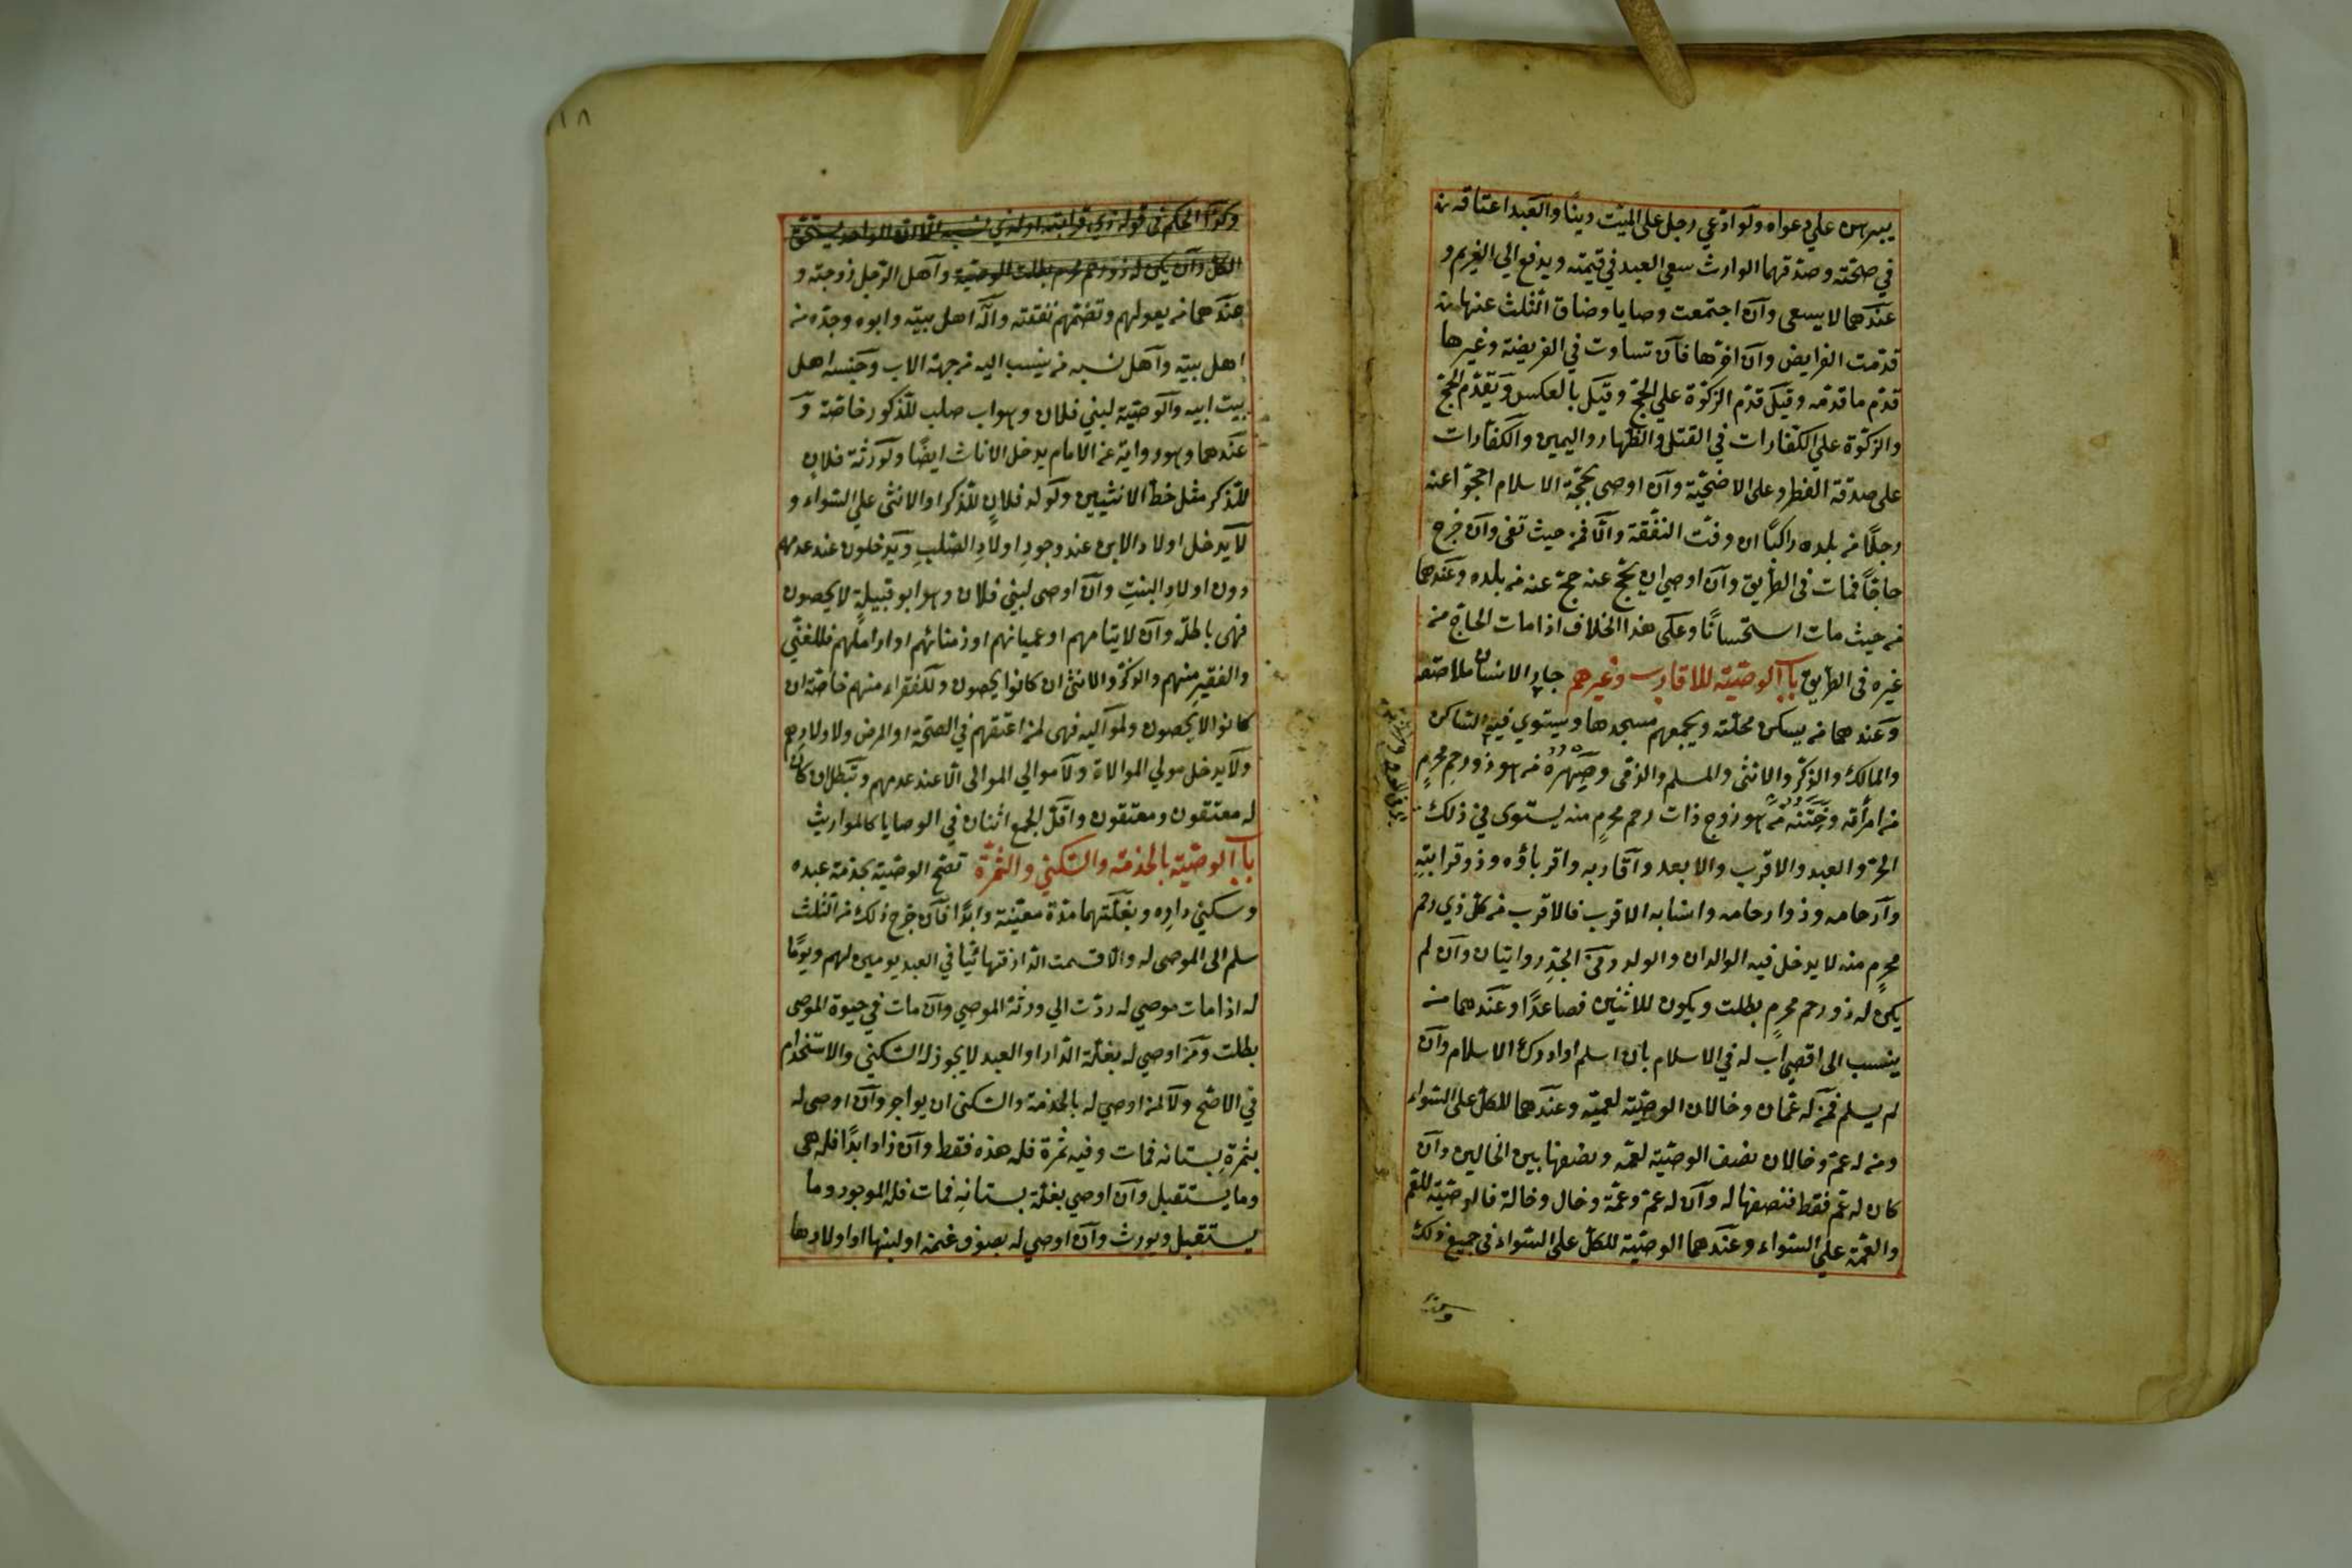 يبرهن علي دعواه ولو ادعي رجل على الميت دينًا والعبد اعتاقه
في صحته وصدقهما الوارث سعي العبد في قيمته ويدفع الي الغريم و
عندهما لا يسعى وان اجتمعت وصايا وضاق الثلث عنها
قدمت الفرايض وان اخرها فان تساوت في الفريضة وغيرها
قدم ما قدمه وقيل قدم الزكوة علي الحج وقيل بالعكس ويقدم الحج
والزكوة علي الكفارات في القتل والظهار واليمين والكفارات
على صدقة الفطر وعلى الاضحية وان اوصى بحجة الاسلام احجوا عنه
رجلًا من بلده راكبًا ان وفت النفقة والا فمن حيث تفي وان خرج
حاجًا فمات في الطريق وان اوصي ان يحج عنه حج عنه من بلده وعندهما
من حيث مات استحسانًا وعلى هذا الخلاف اذا مات الحاج من
غيره في الطريق باب الوصية للاقارب وغيرهم جار الانسان ملاصقه
وعندهما من يسكن محلته ويجمعهم مسجدها ويستوي فيه الساكن
والمالك والذكر والانثى والمسلم والذمي وصهره من هو ذو رحم محرمٍ
من امرأته وختنه من هو زوج ذات رحم محرمٍ منه يستوى في ذلك
الحر والعبد والاقرب والابعد واقاربه واقرباؤه وذو قرابته
وارحامه وذوا رحامه وانسابه الاقرب فالاقرب من كل ذي رحم
محرمٍ منه لا يدخل فيه الوالدان والولد وفي الجد روايتان وان لم
يكن له ذو رحم محرمٍ بطلت ويكون للاثنين فصاعدًا وعندهما من
ينسب الى اقصى اب له في الاسلام بان اسلم او ادرك الاسلام وان
لم يسلم فمن له عمان وخالان الوصية لعميه وعندهما للكل على السواء
ومن له عم وخالان نصف الوصية لعمه ونصفها بين الخالين وان
كان له عم فقط فنصفها له وان له عم وعمة وخال وخالة فالوصية للعم
والعمة علي السواء وعندهما الوصية للكل على السواء في جميع ذلك
وكذا الحكم في قوله ذي قرابته او لذي نسبه الا ان الواحد يستحق
الكل وان لم يكن له ذو رحم محرم بطلت الوصية واهل الرجل زوجته و
عندهما من يعولهم وتضمهم نفقته وآله اهل بيته وابوه وجده من
اهل بيته واهل نسبه من ينسب اليه من جهة الاب وجنسه اهل
بيت ابيه والوصية لبني فلان وهو اب صلب للذكور خاصة و
عندهما وهو رواية عن الامام يدخل الاناث ايضًا ولورثة فلان
للذكر مثل حظ الانثيين ولولد فلانٍ للذكر او الانثى علي السواء و
لا يدخل اولاد الابن عند وجود اولادِ الصلبِ ويدخلون عند عدمهم
دون اولادِ البنتِ وان اوصى لبني فلان وهو ابو قبيلةٍ لا يحصون
فهى باطلة وان لايتامهم او عميانهم او زمنائهم او اراملهم فللغني
والفقير منهم والذكر والانثى ان كانوا يحصون وللفقراء منهم خاصة ان
كانوا لا يحصون ولمواليه فهى لمن اعتقهم في الصحة او المرض ولاولادهم
ولا يدخل مولي الموالاة ولا موالي الموالى الا عند عدمهم وتبطل ان كان
له معتقون ومعتقون واقل الجمع اثنان في الوصايا كالمواريث
باب الوصية بالخدمة والسكني والثمرة تصح الوصية بخدمة عبده
وسكني دارِه وبغلتهما مدة معينة وابدًا فان خرج ذلك من الثلث
سلم الى الموصى له والا قسمت الدار وتهائيا في العبد يومين لهم ويومًا
له اذا مات موصي له ردت الي ورثة الموصي وان مات في حيوة الموصى
بطلت ومن اوصي له بغلة الدار او العبد لا يجوز له السكني والاستخدام
في الاصح ولا لمن اوصي له بالخدمة والسكنى ان يواجر وان اوصى له
بثمرةِ بستانه فمات وفيه ثمرة فله هذه فقط وان زاد ابدًا فله هى
وما يستقبل وان اوصي بغلة بستانِه فمات فله الموجود وما
يستقبل ويورث وان اوصي له بصوف غنمه او لبنها او اولادها